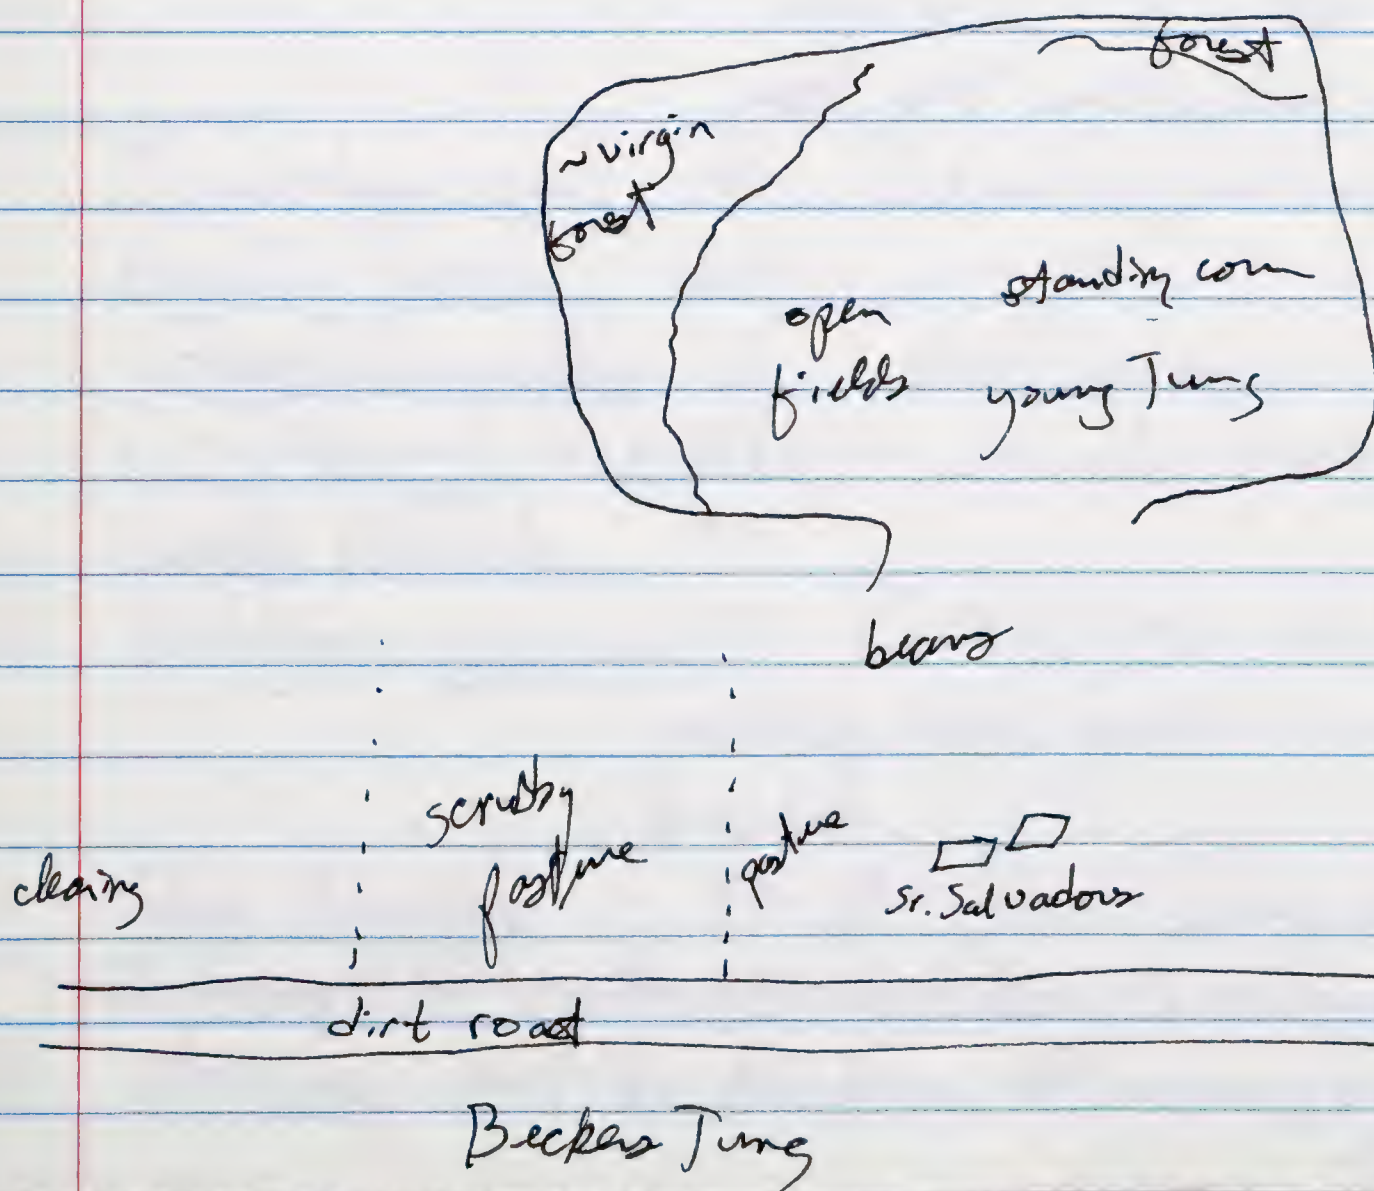 forest
~virgin
forest
standing corn
open
fields
young Tung
beans
scrubby
pasture
pasture
clearing
Sr. Salvadors
dirt road
Beckers Tung